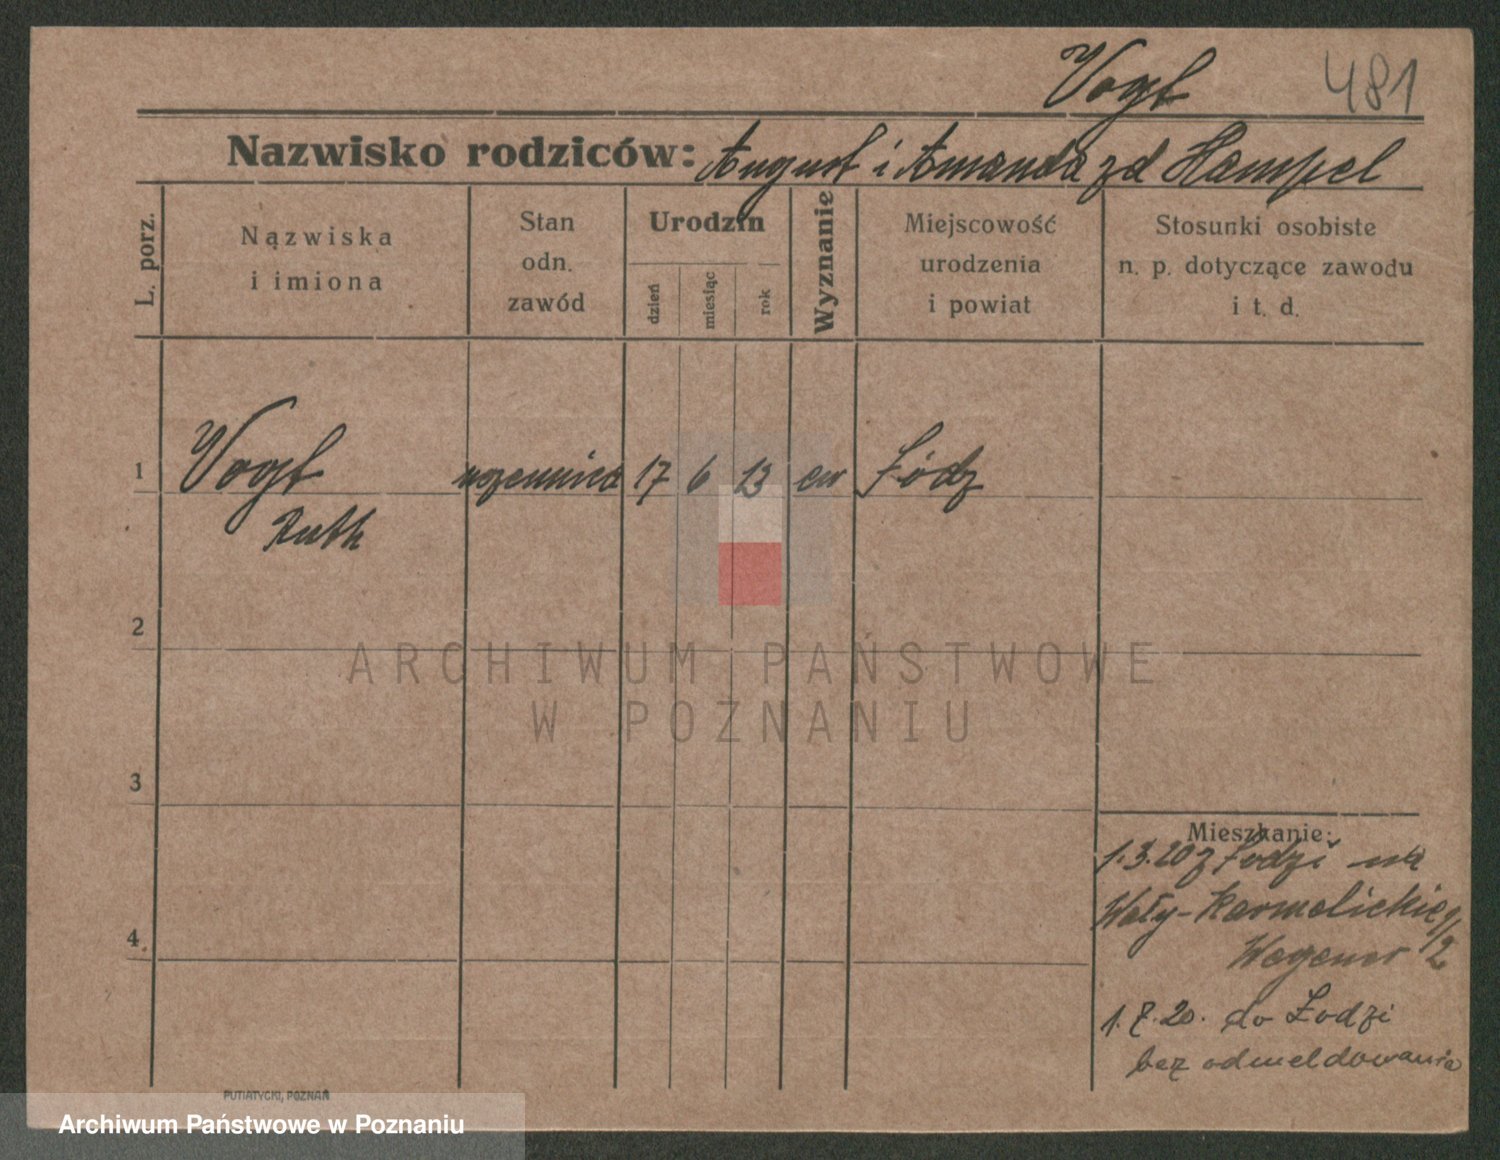 Vogt 481
Nazwisko rodziców: August i Amanda zd Hampel
L. porz.
Nązwiska
i imiona
Stan
odn.
zawód
Urodzin
dzień
miesiąc
rok
Wyznanie
Miejscowość
urodzenia
i powiat
Stosunki osobiste
n. p. dotyczące zawodu
i t. d.
1 Vogt uczennica 17 6 13 ew Łódz
Ruth
2
ARCHIWUM PAŃSTWOWE
W POZNANIU
3
Mieszkanie:
1.3.20 z Łodzi na
Wały-Karmelickie 9/2
4
Wegener
1.7.20. do Łodzi
bez odmeldowania
PUTIATYCKI, POZNAŃ
Archiwum Państwowe w Poznaniu